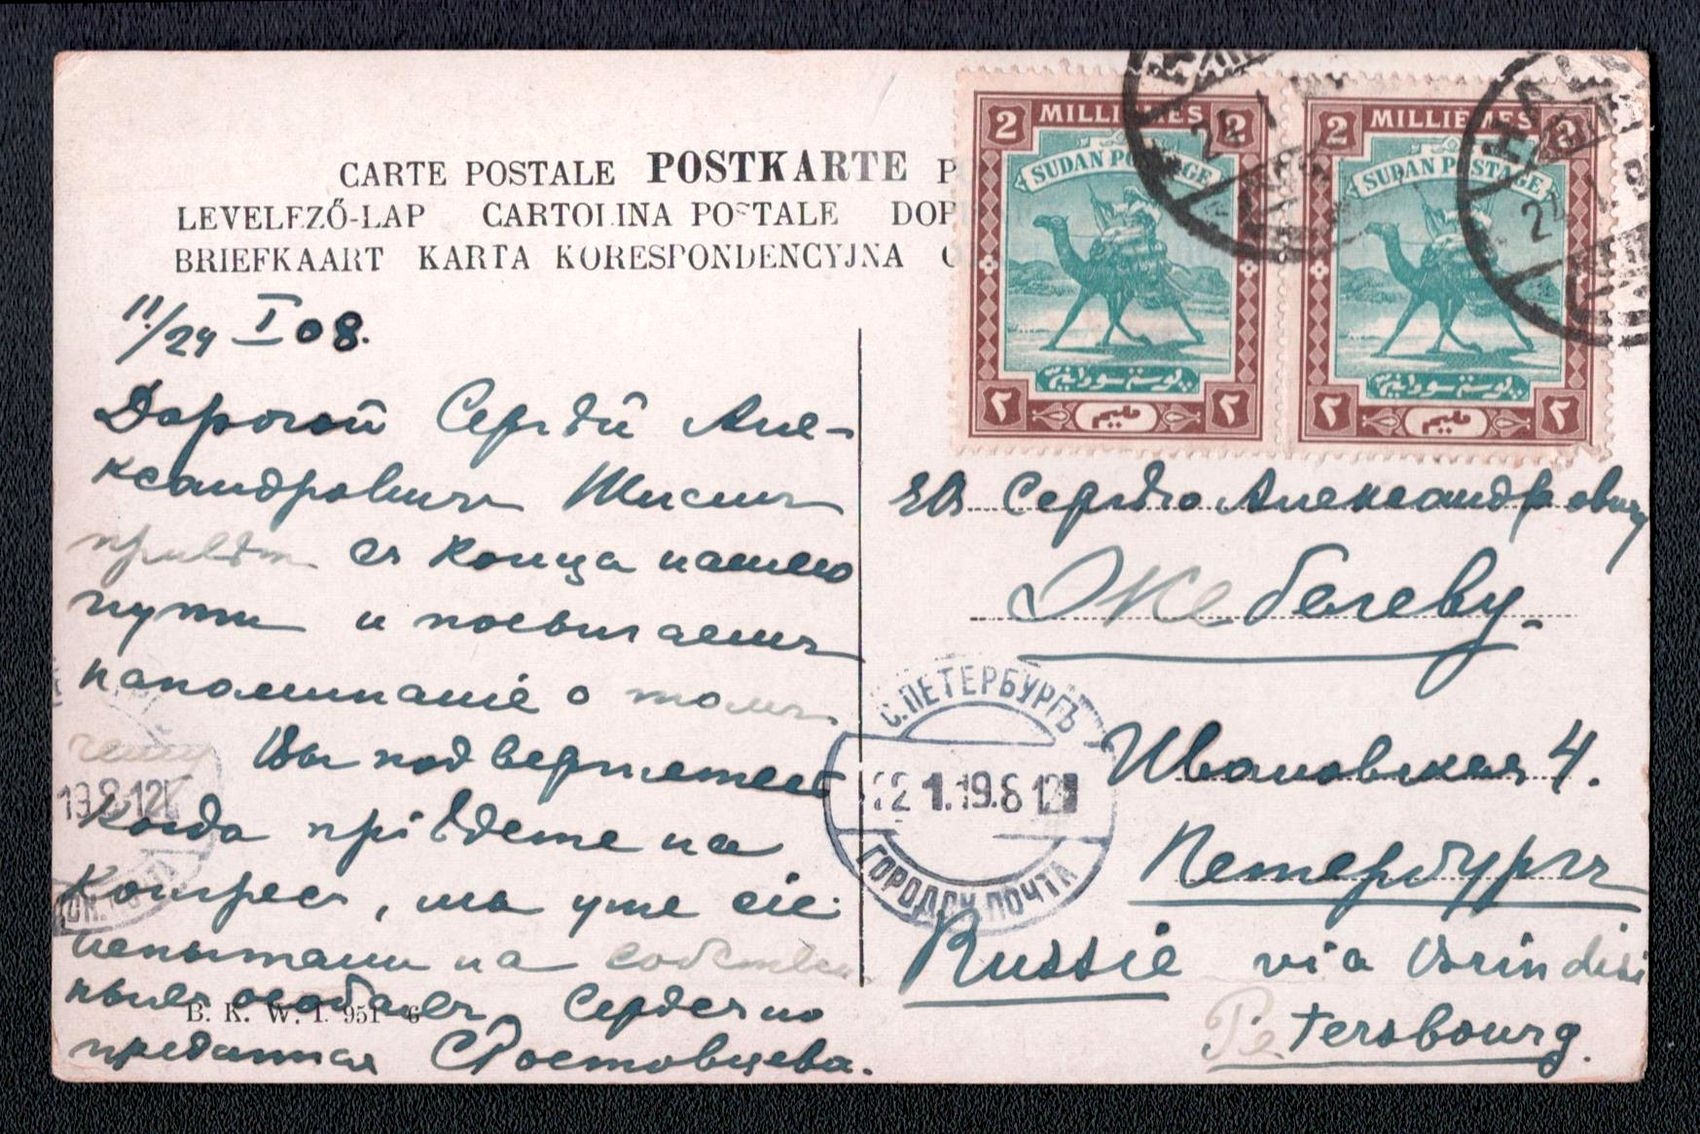 CARTE POSTALE POSTKARTE P
LEVELEZŐ-LAP CARTOLINA POSTALE DOP
BRIEFKAART KARTA KORESPONDENCYJNA
2 MILLIÈMES 2
SUDAN POSTAGE
بوستة سودانية
٢ مليم ٢
2 MILLIÈMES 2
SUDAN POSTAGE
بوستة سودانية
٢ مليم ٢
11/24 I 08.
Дорогой Сергѣй Але-
ксандровичъ Шлемъ
привѣтъ съ конца нашего
пути и посылаемъ
напоминанiе о томъ
чему Вы подвергнетесь
когда прiѣдете на
Конгресс, мы уже сiе
испытали на собствен
ныхъ особахъ. Сердечно
преданная СРостовцева.
B. K. W. I. 951-6
ЕВ Сергѣю Александровичу
Жебелеву.
Ивановская 4.
Петербургъ
Russie via Brindisi
Petersbourg.
С.ПЕТЕРБУРГЪ
12.1.19.8 12
ГОРОДСК. ПОЧТА
19.8.12